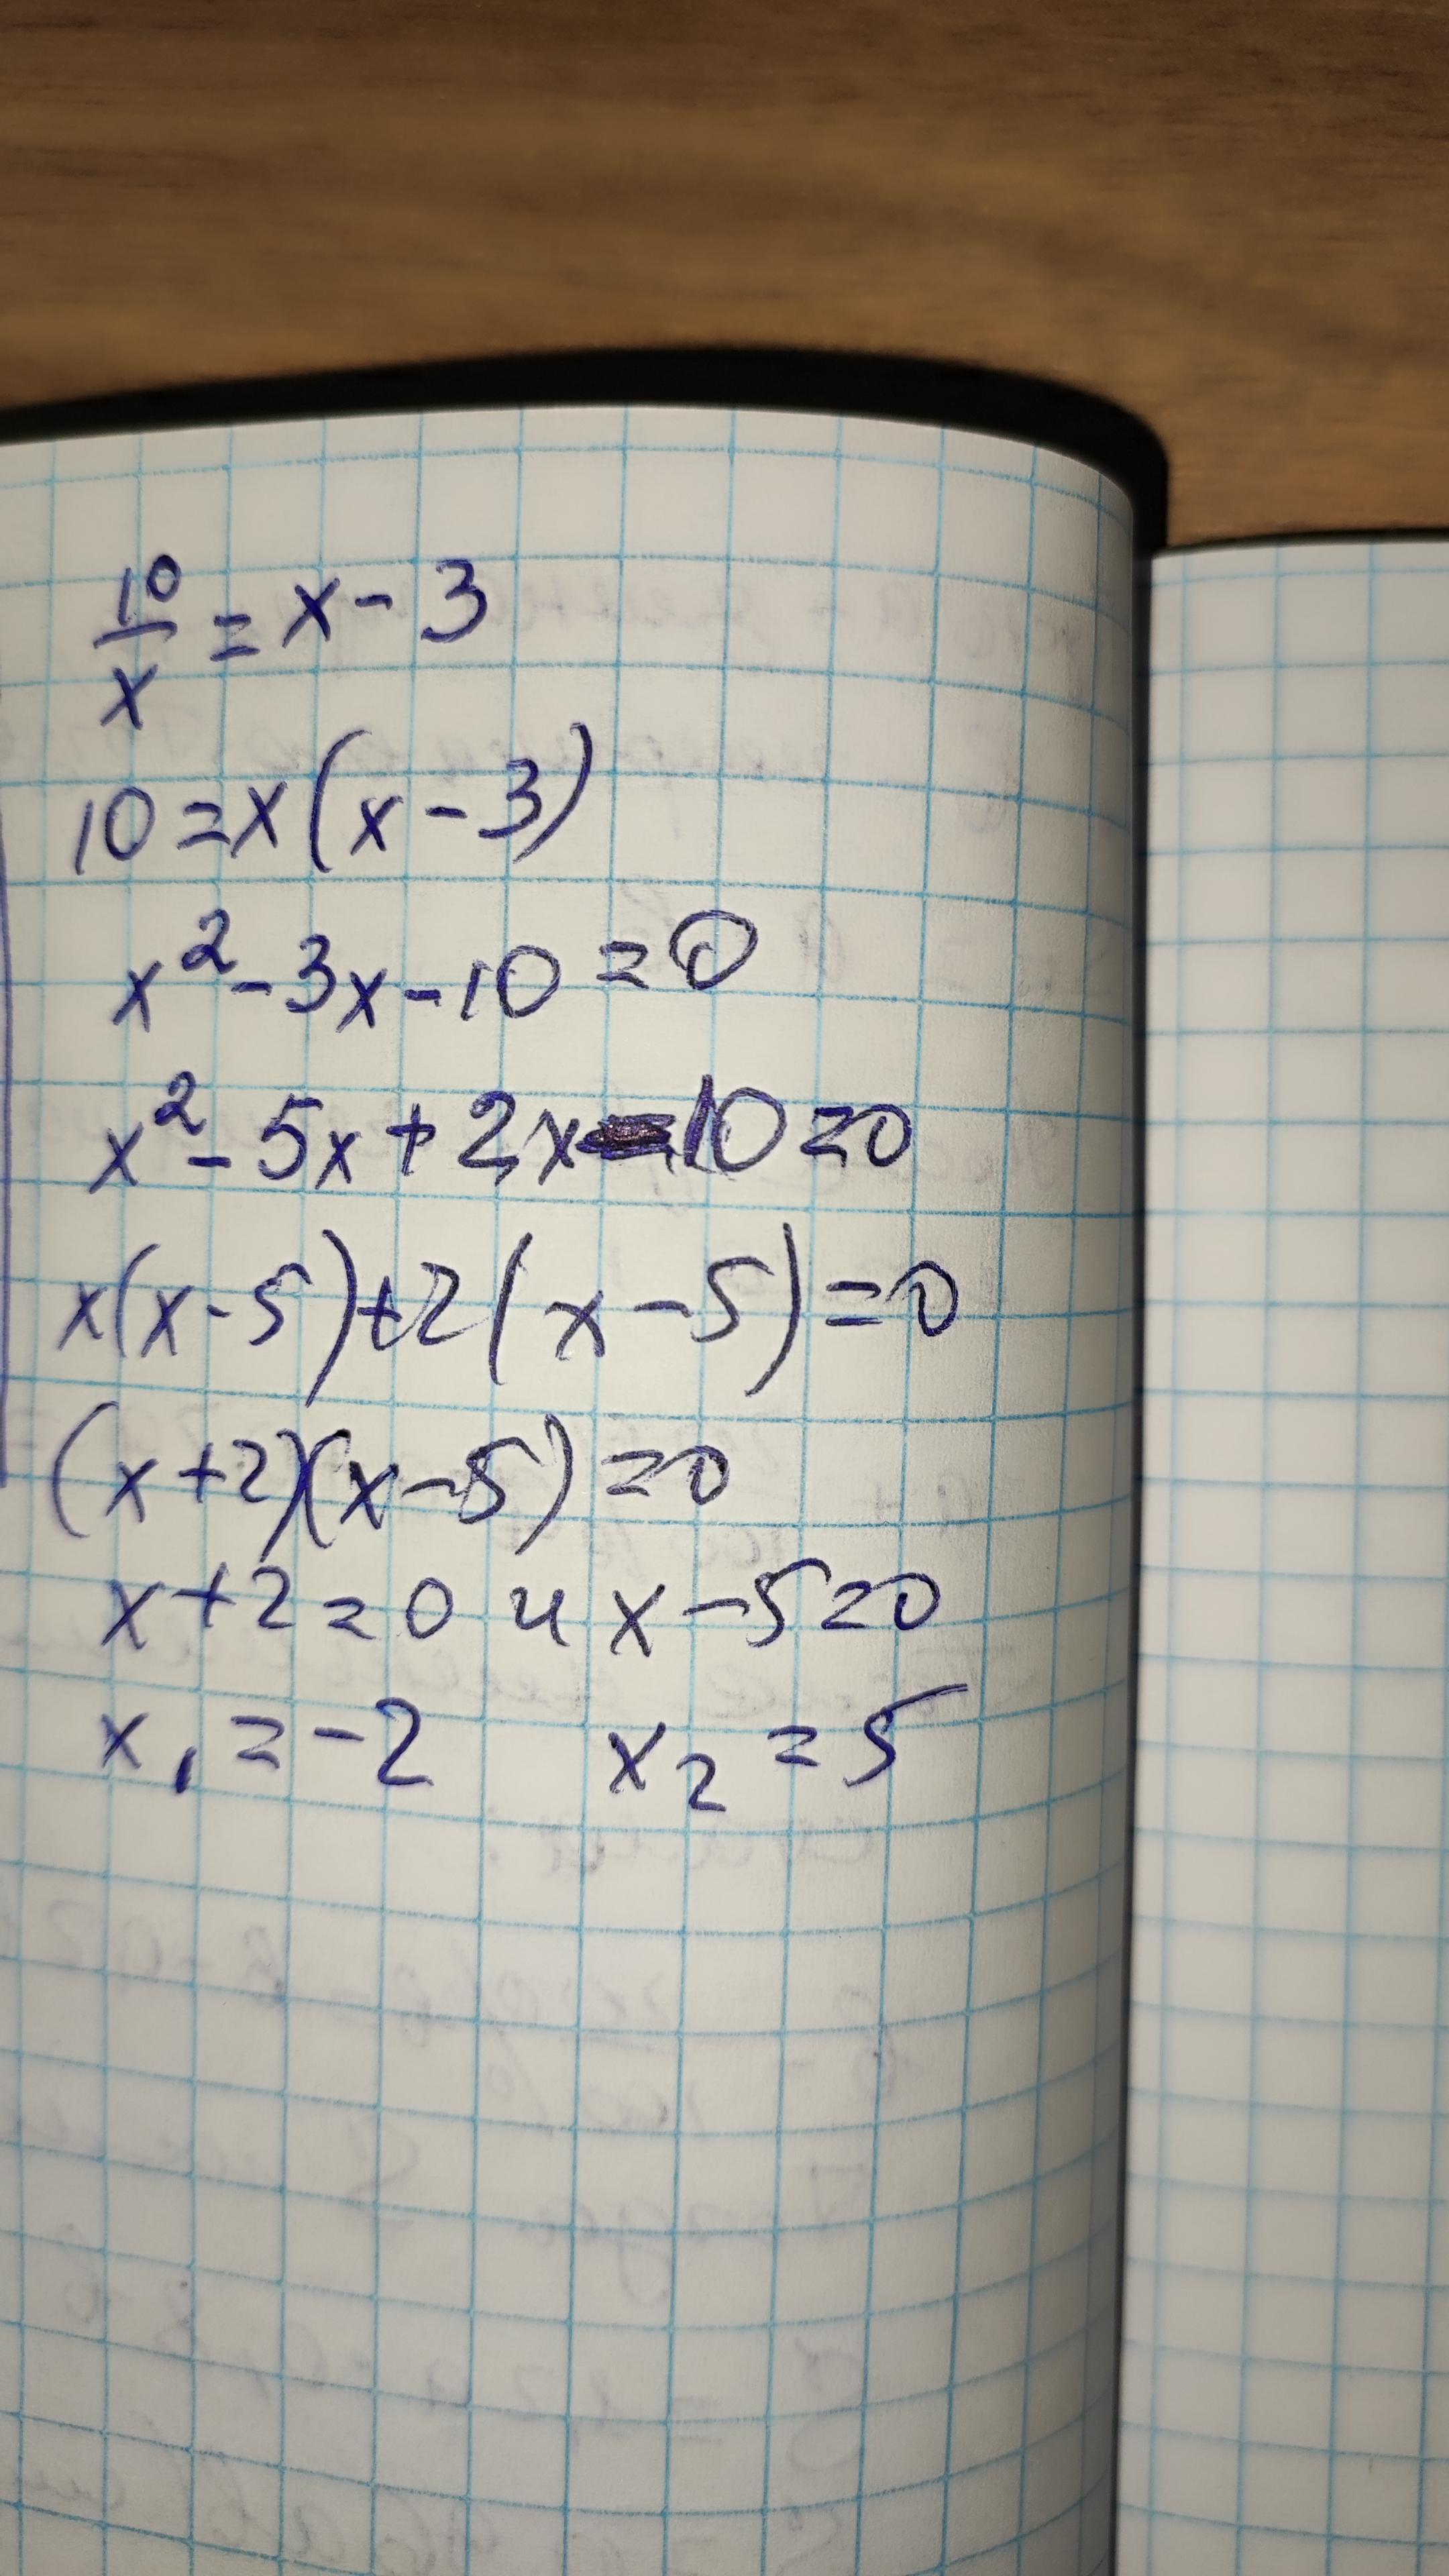 10/x = x - 3
10 = x(x - 3)
x² - 3x - 10 = 0
x² - 5x + 2x - 10 = 0
x(x - 5) + 2(x - 5) = 0
(x + 2)(x - 5) = 0
x + 2 = 0 и x - 5 = 0
x₁ = -2 x₂ = 5